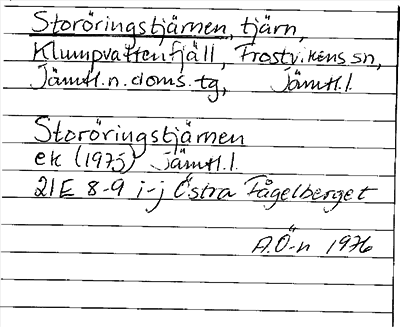 Storöringstjärnen, tjärn,
Klumpvattenfjäll, Frostvikens sn,
Jämtl.n.doms.tg, Jämtl.l.
Storöringstjärnen
ek (1975) Jämtl.l.
21E 8-9 i-j Östra Fågelberget
A.Ö-n 1976